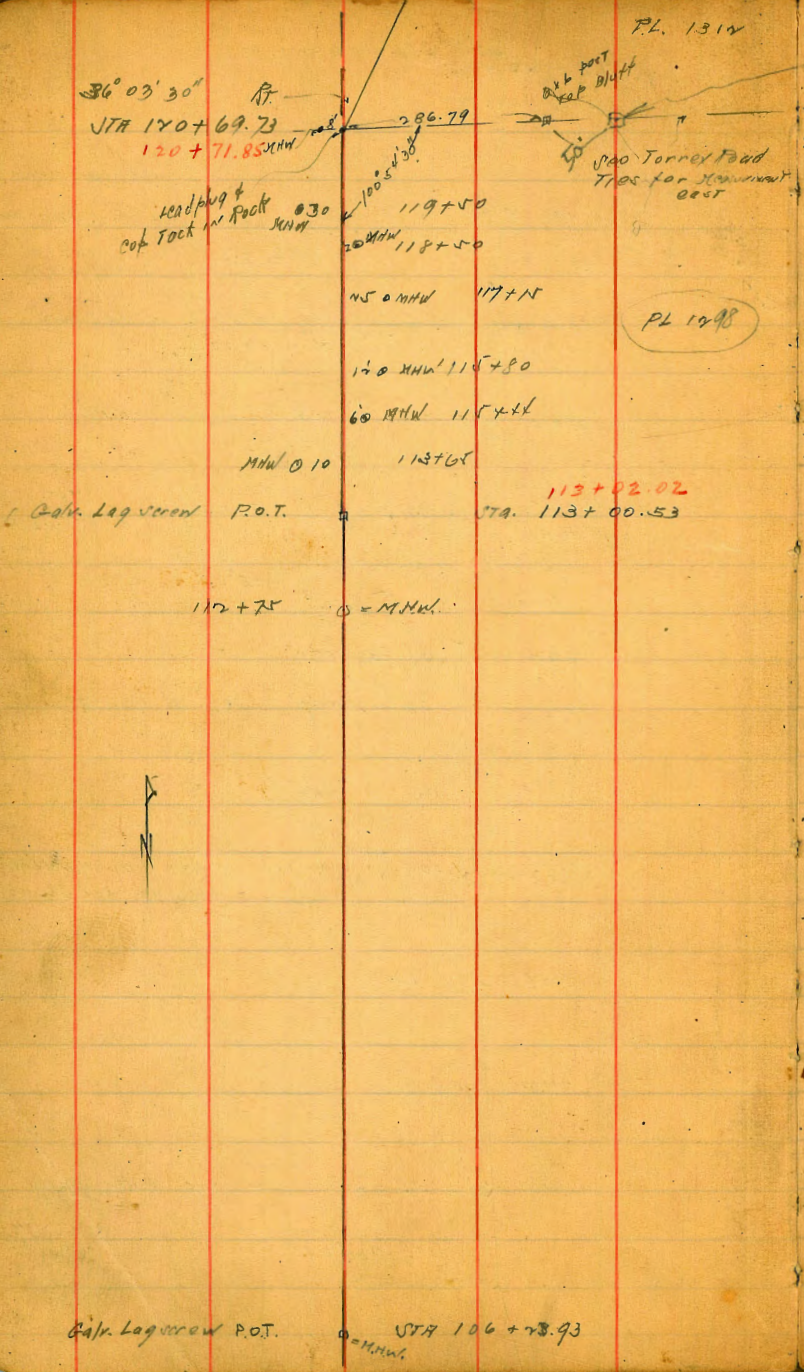 P.L. 1312
36° 03' 30" Rt.
STA 120+69.73
120+71.85 MHW
8'
286.79
post
top Bluff
See Torrey Road
Ties for Measurement
east
100° 54' 30"
Lead plug &
cop Tack in Rock
30
MHW
119+50
20 MHW 118+50
25 MHW 117+15
PL 1298
12 MHW 115+80
60 MHW 115+44
MHW 10 113+65
113+02.02
Galv. Lag screw P.O.T. STA. 113+00.53
112+75 = M.H.W.
N
Galv. Lag screw P.O.T. STA 106+23.93
= M.H.W.